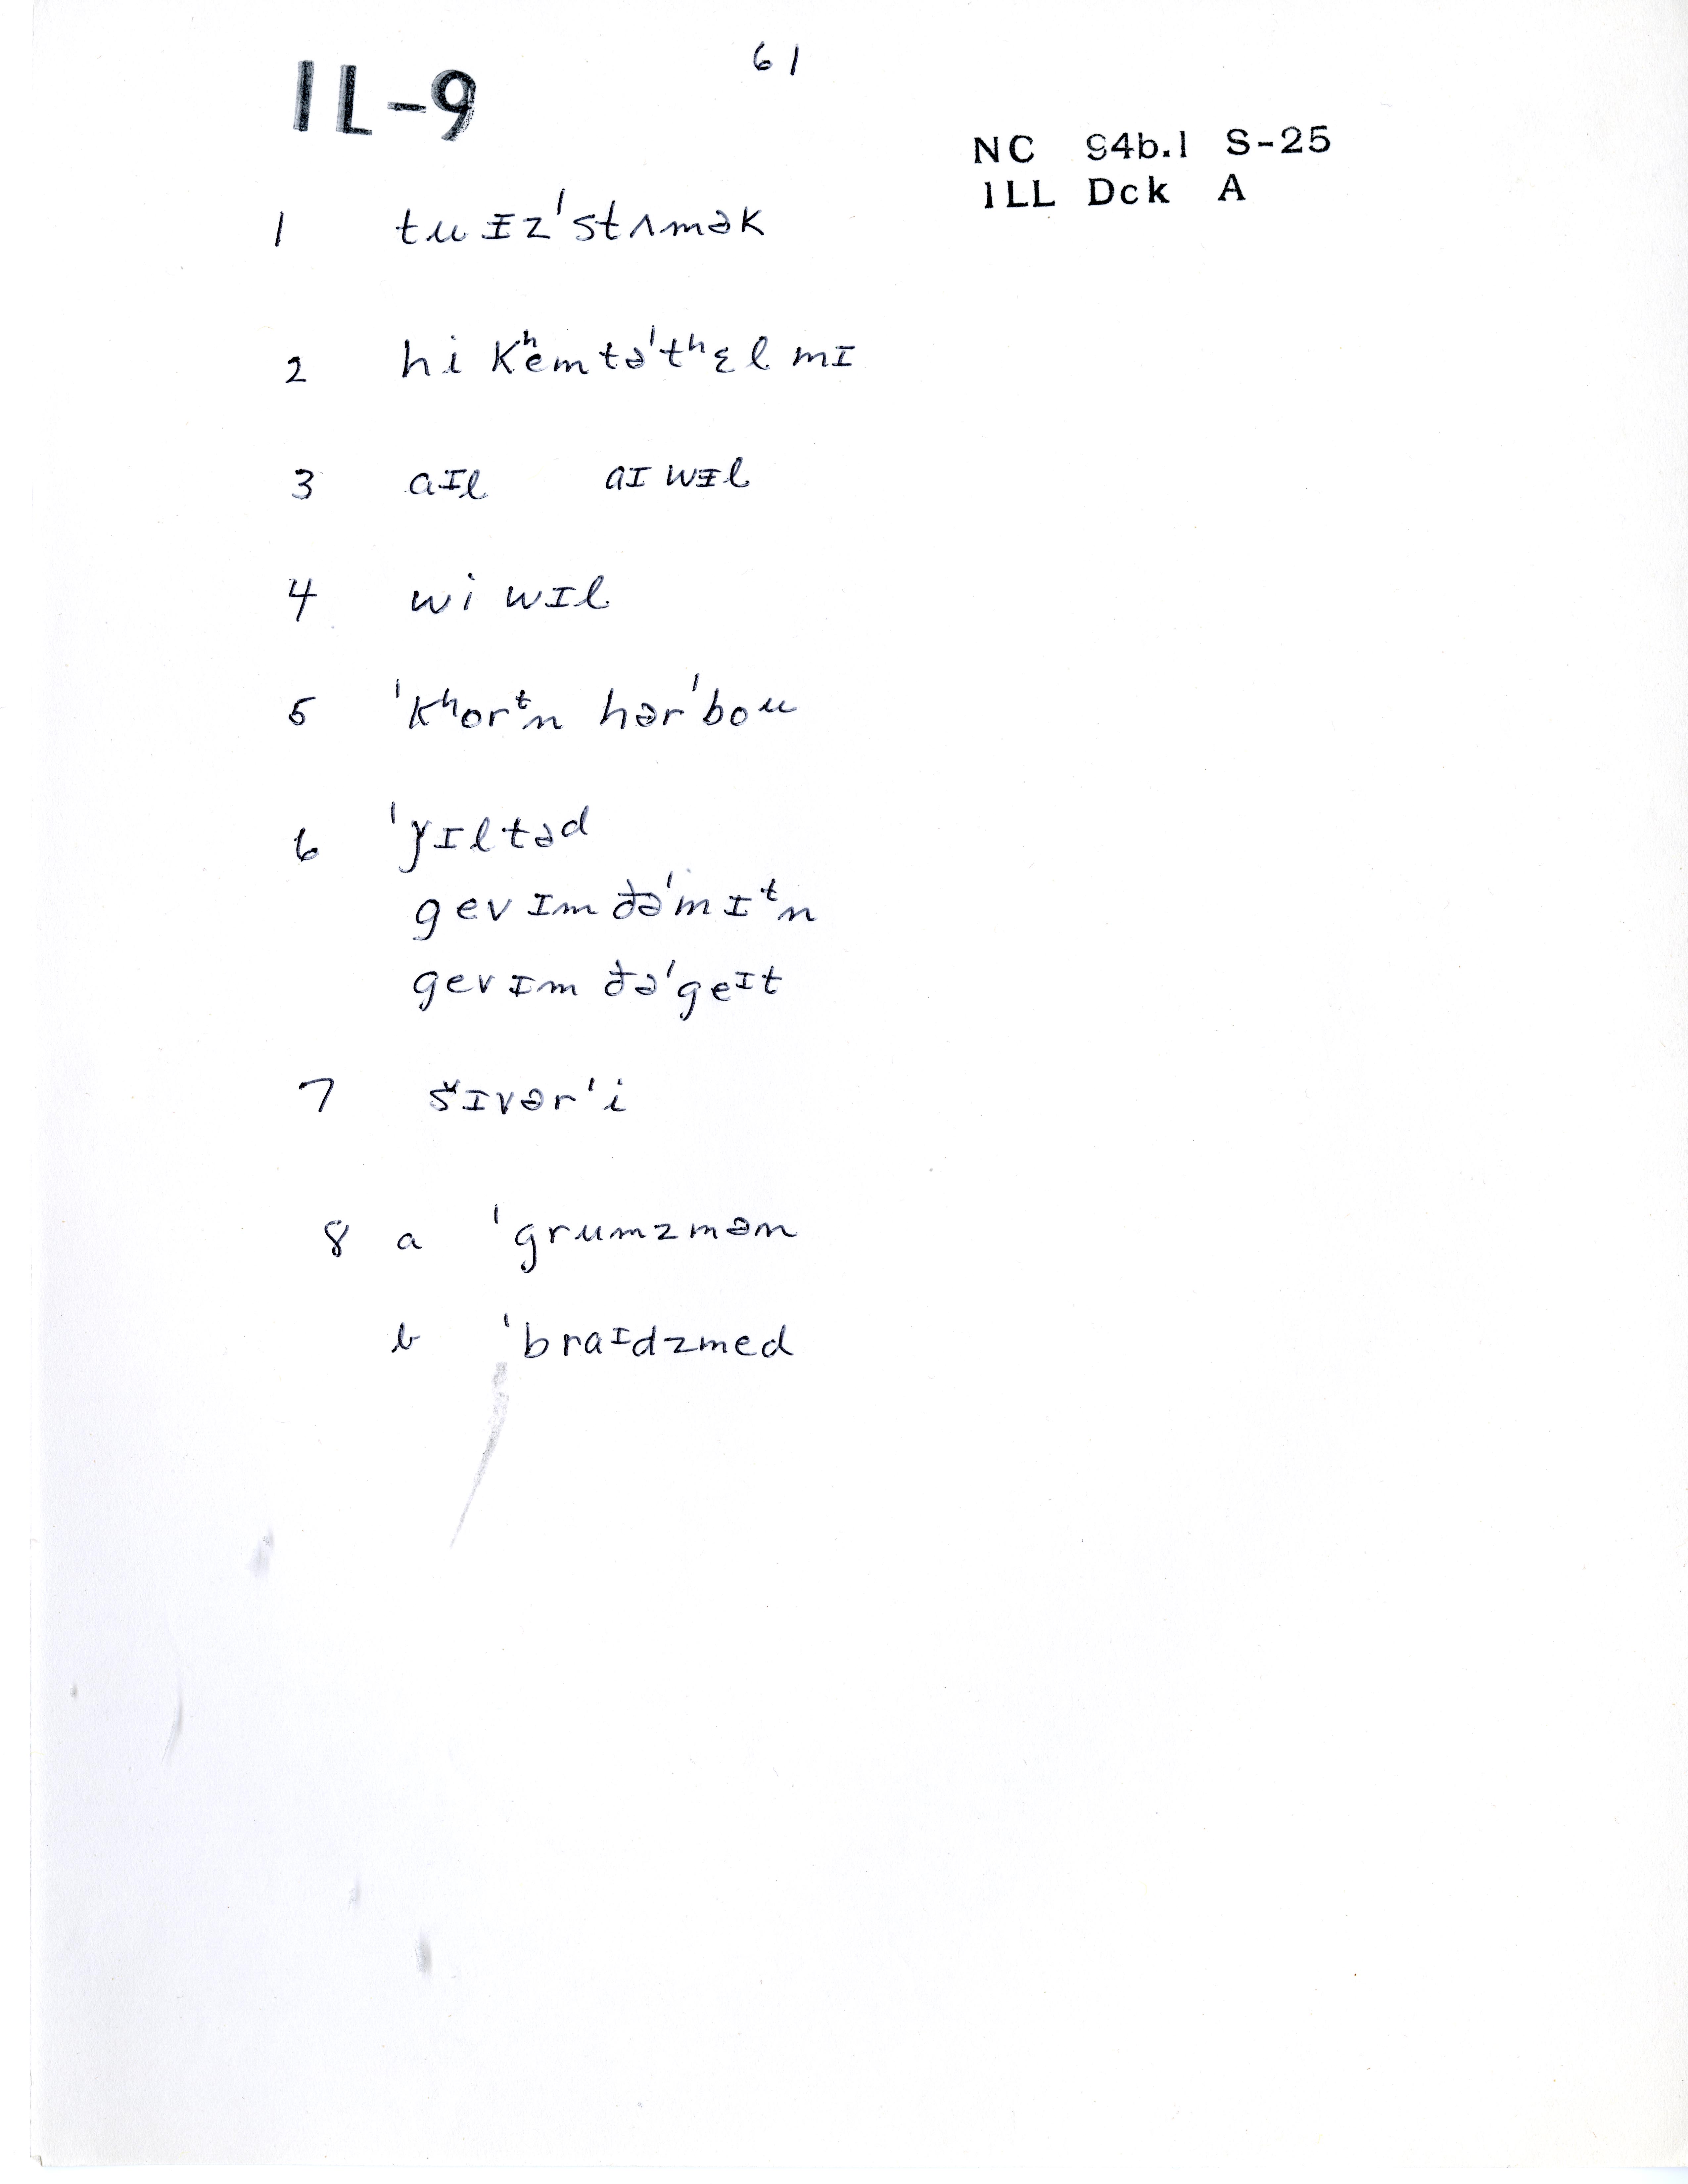 61
IL-9
NC 94b.1 S-25
ILL Dck A
1 tu ɪz'stʌmək
2 hi kʰemtə'tʰɛl mɪ
3 aɪl aɪ wɪl
4 wi wɪl
5 'kʰorᵗn hər'bou
6 'ɟɪltəd
gev ɪm ðə'mɪᵗn
gev ɪm ðə'geɪt
7 šɪvər'i
8 a 'grumzmən
b 'braɪdzmed